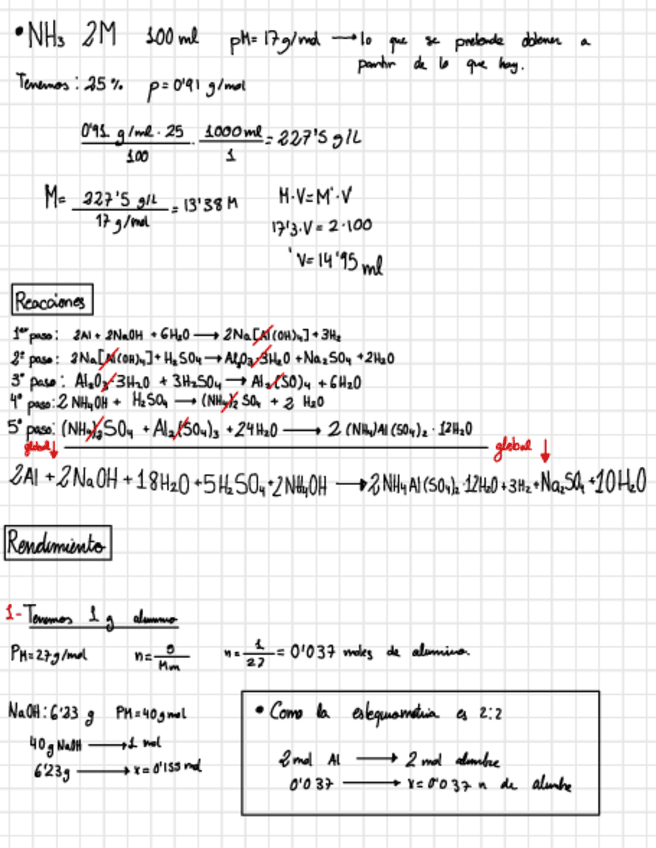 • NH₃ 2M 100 ml pM= 17g/mol → lo que se pretende obtener a
partir de lo que hay.
Tenemos: 25% p=0'91 g/mol
0'91 g/ml · 25 / 100 · 1000 ml / 1 = 227'5 g/L
M= 227'5 g/L / 17 g/mol = 13'38 M
M·V=M'·V
17'3·V = 2·100
V=14'95 ml
Reacciones
1er paso: 2Al + 2NaOH + 6H₂O → 2Na[Al(OH)₄]+3H₂
2º paso: 2Na[Al(OH)₄]+H₂SO₄→Al₂O₃·3H₂O +Na₂SO₄ +2H₂O
3º paso: Al₂O₃·3H₂O + 3H₂SO₄→ Al₂(SO)₄ + 6H₂O
4º paso: 2 NH₄OH + H₂SO₄ → (NH₄)₂ SO₄ + 2 H₂O
5º paso: (NH₄)₂SO₄ + Al₂(SO₄)₃ +24H₂O → 2 (NH₄)Al(SO₄)₂ · 12H₂O
global↓ global ↓
2Al +2NaOH +18H₂O +5H₂SO₄+2NH₄OH →2NH₄Al(SO₄)₂·12H₂O+3H₂+Na₂SO₄+10H₂O
Rendimiento
1- Tenemos 1 g aluminio
PM=27g/mol n= g / Mm n= 1 / 27 = 0'037 moles de aluminio.
NaOH: 6'23 g PM=40gmol
40g NaOH → 1 mol
6'23g → x=0'155 mol
• Como la estequiometria es 2:2
2 mol Al → 2 mol alumbre
0'037 → x=0'037 n de alumbre